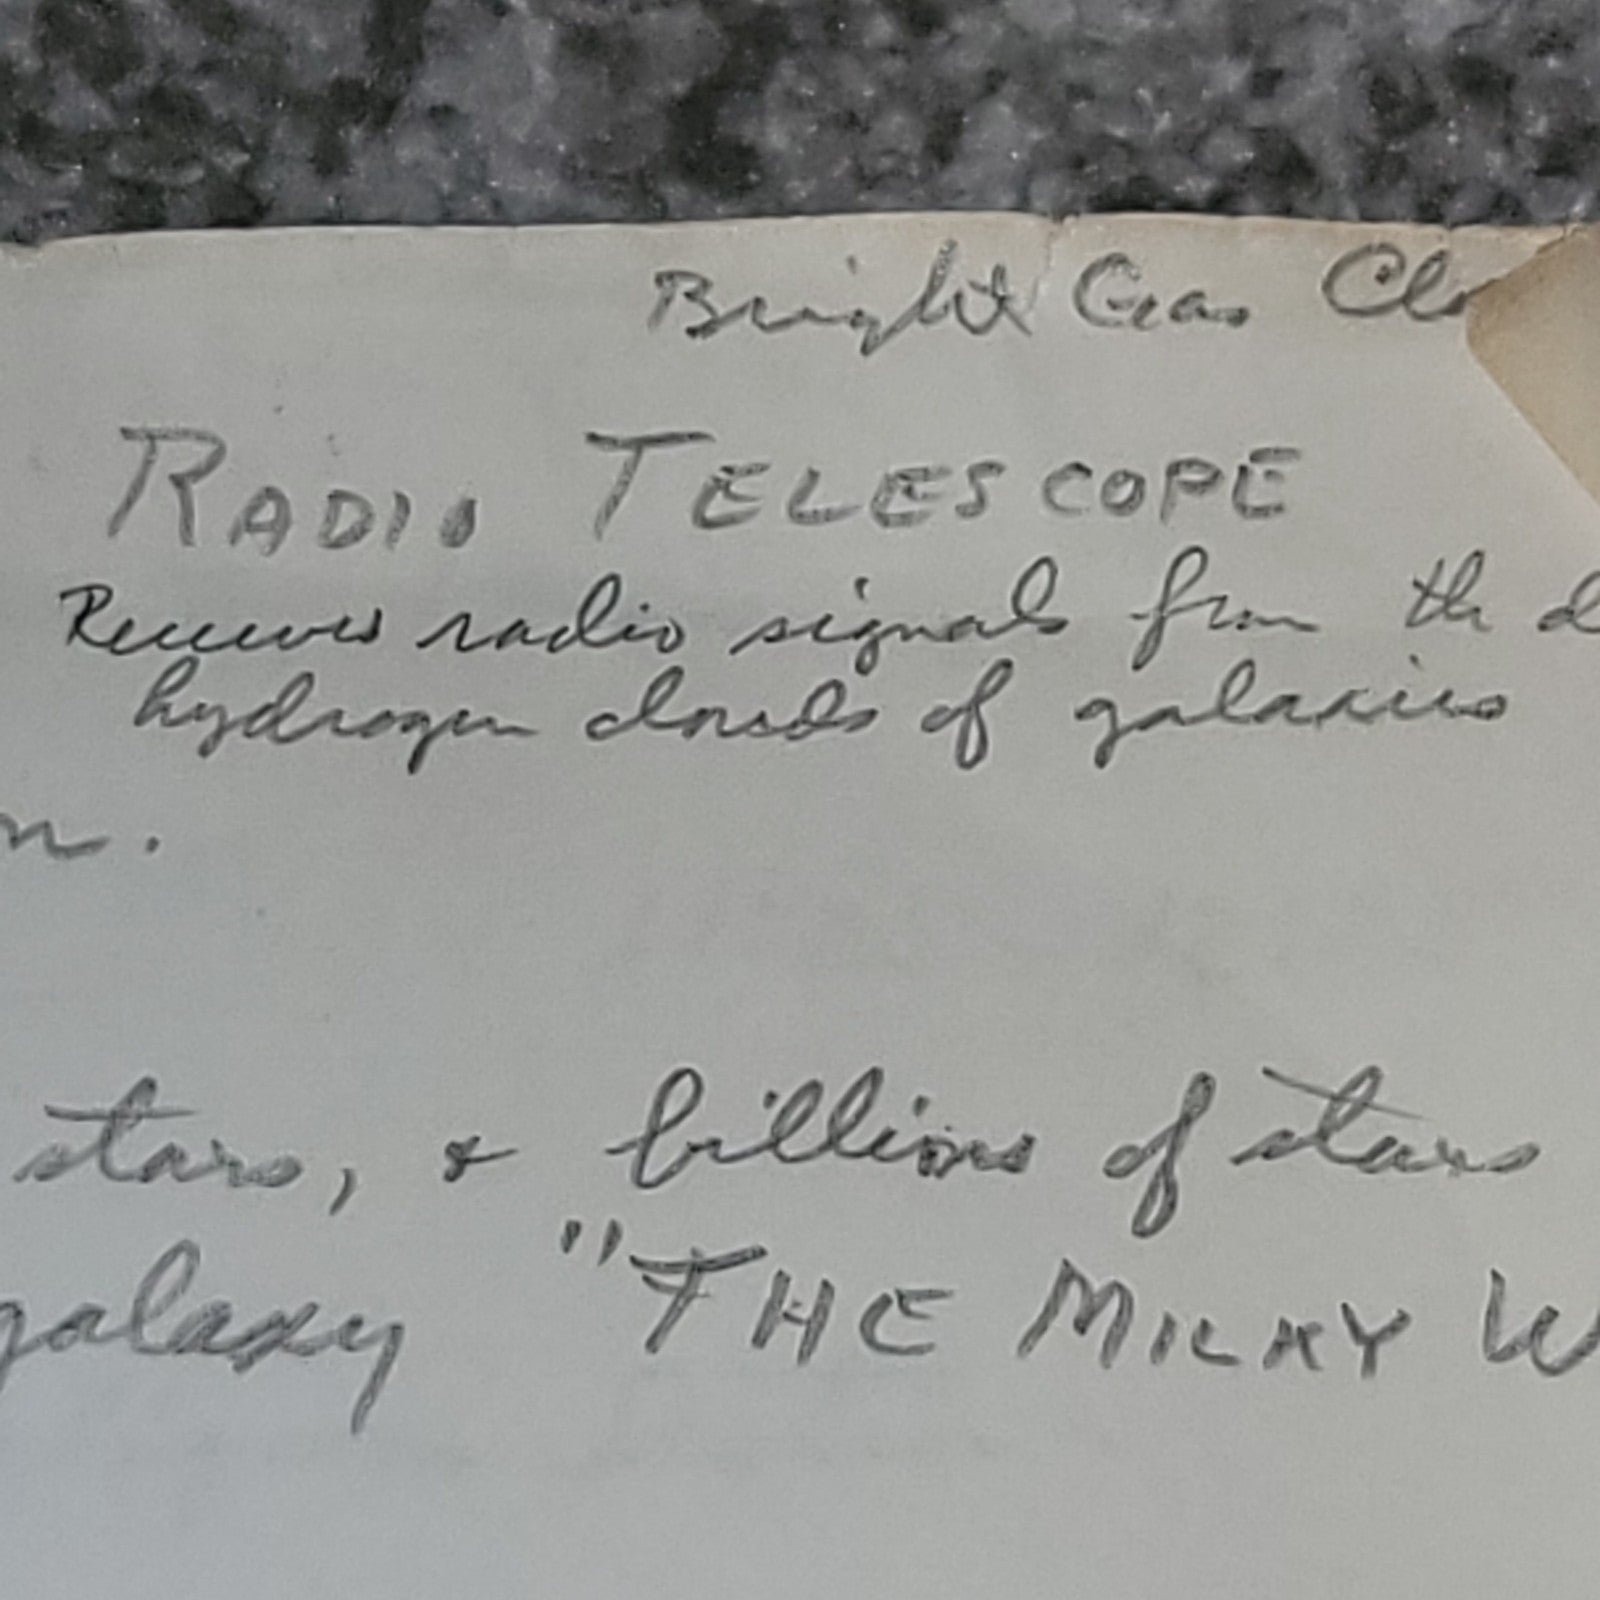 Bright Gas Clo
RADIO TELESCOPE
Receives radio signals from the d
hydrogen clouds of galaxies
n.
stars, & billions of stars
galaxy "THE MILKY W